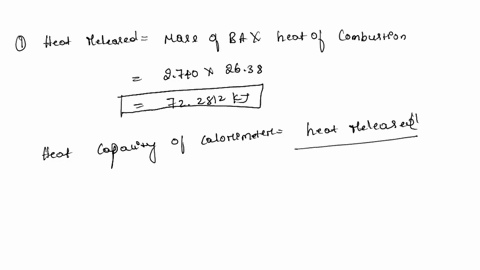 ① Heat Released = Mass of BA X heat of Combustion
= 2.740 X 26.38
= 72.2812 KJ
Heat Capacity of Calorimeter = heat released